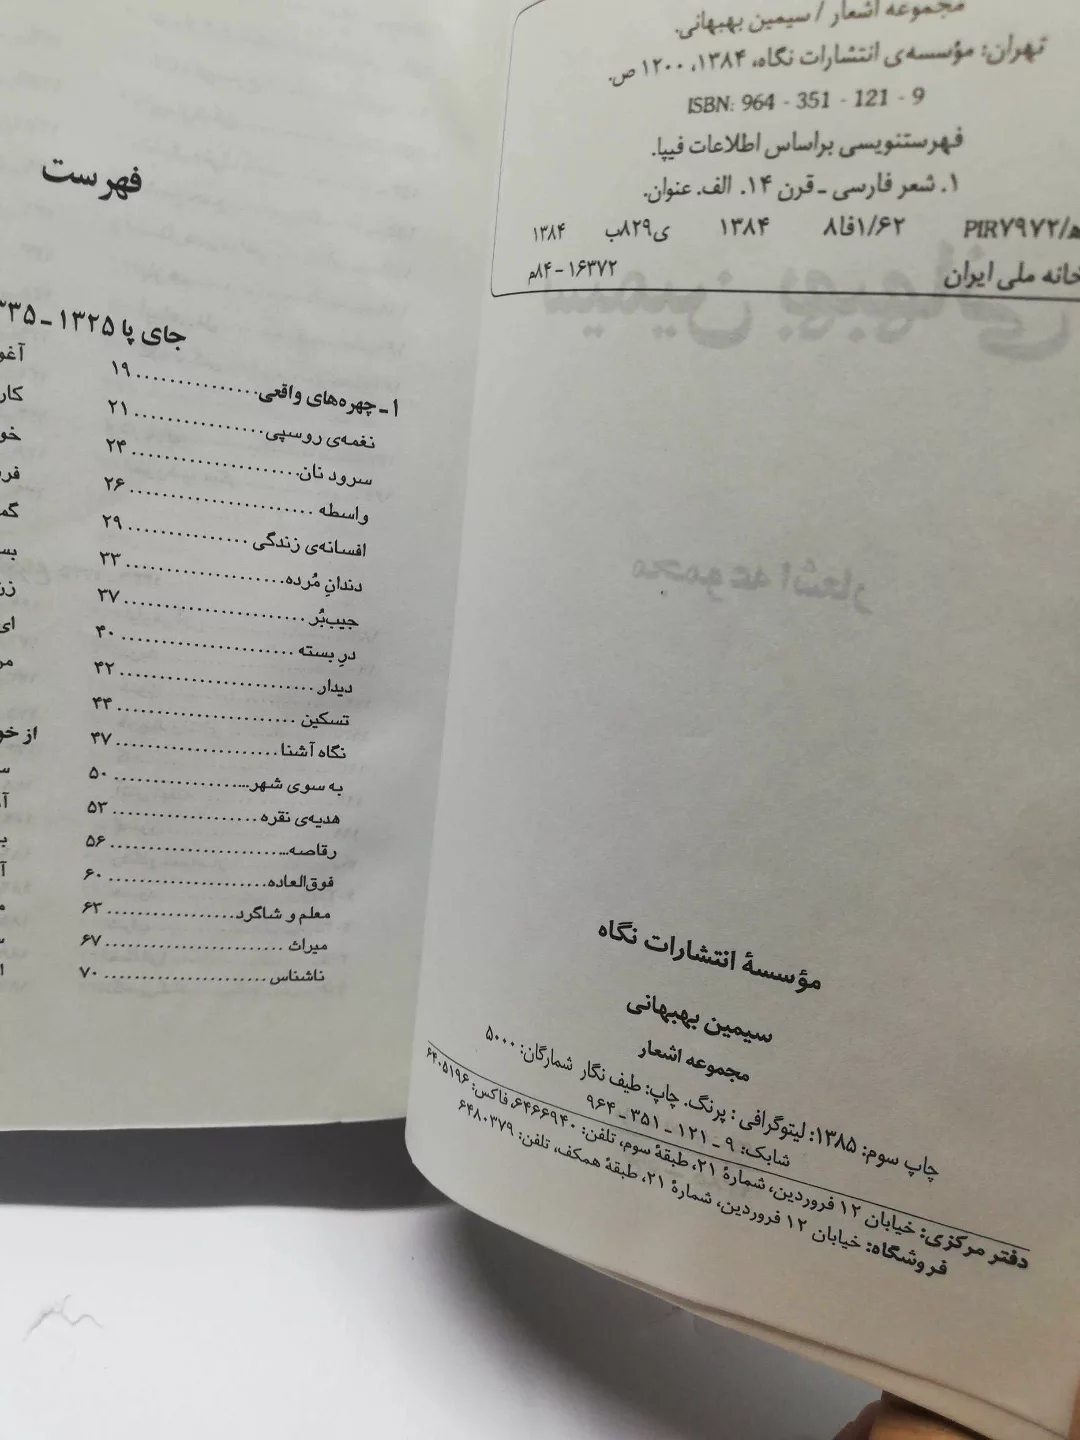 مجموعه اشعار / سیمین بهبهانی.
تهران: مؤسسه‌ی انتشارات نگاه، ۱۳۸۴، ۱۲۰۰ ص.
ISBN: 964 - 351 - 121 - 9
فهرستنویسی براساس اطلاعات فیپا.
۱. شعر فارسی ـ قرن ۱۴. الف. عنوان.
PIR۷۹۷۲/ه ۸فا۱/۶۲ ۱۳۸۴ ی۸۲۹ب ۱۳۸۴
خانه ملی ایران ۱۶۳۷۲ – ۸۴م
مؤسسهٔ انتشارات نگاه
سیمین بهبهانی
مجموعه اشعار
چاپ سوم: ۱۳۸۵؛ لیتوگرافی: پرنگ. چاپ: طیف نگار شمارگان: ۵۰۰۰
شابک: ۹ ـ ۱۲۱ ـ ۳۵۱ ـ ۹۶۴
دفتر مرکزی: خیابان ۱۲ فروردین، شمارهٔ ۲۱، طبقهٔ سوم، تلفن: ۶۴۶۶۹۴۰، فاکس: ۶۴۰۵۱۹۶
فروشگاه: خیابان ۱۲ فروردین، شمارهٔ ۲۱، طبقهٔ همکف، تلفن: ۶۴۸۰۳۷۹
فهرست
جای پا ۱۳۲۵ ـ ۳۳۵
۱ ـ چهره‌های واقعی .............. ۱۹
نغمه‌ی روسپی .............. ۲۱
سرود نان .............. ۲۴
واسطه .............. ۲۶
افسانه‌ی زندگی .............. ۲۹
دندانِ مُرده .............. ۳۳
جیب‌بُر .............. ۳۷
درِ بسته .............. ۴۰
دیدار .............. ۴۲
تسکین .............. ۴۴
نگاه آشنا .............. ۴۷
به سوی شهر... .............. ۵۰
هدیه‌ی نقره .............. ۵۳
رقاصه... .............. ۵۶
فوق‌العاده .............. ۶۰
معلم و شاگرد .............. ۶۳
میراث .............. ۶۷
ناشناس .............. ۷۰